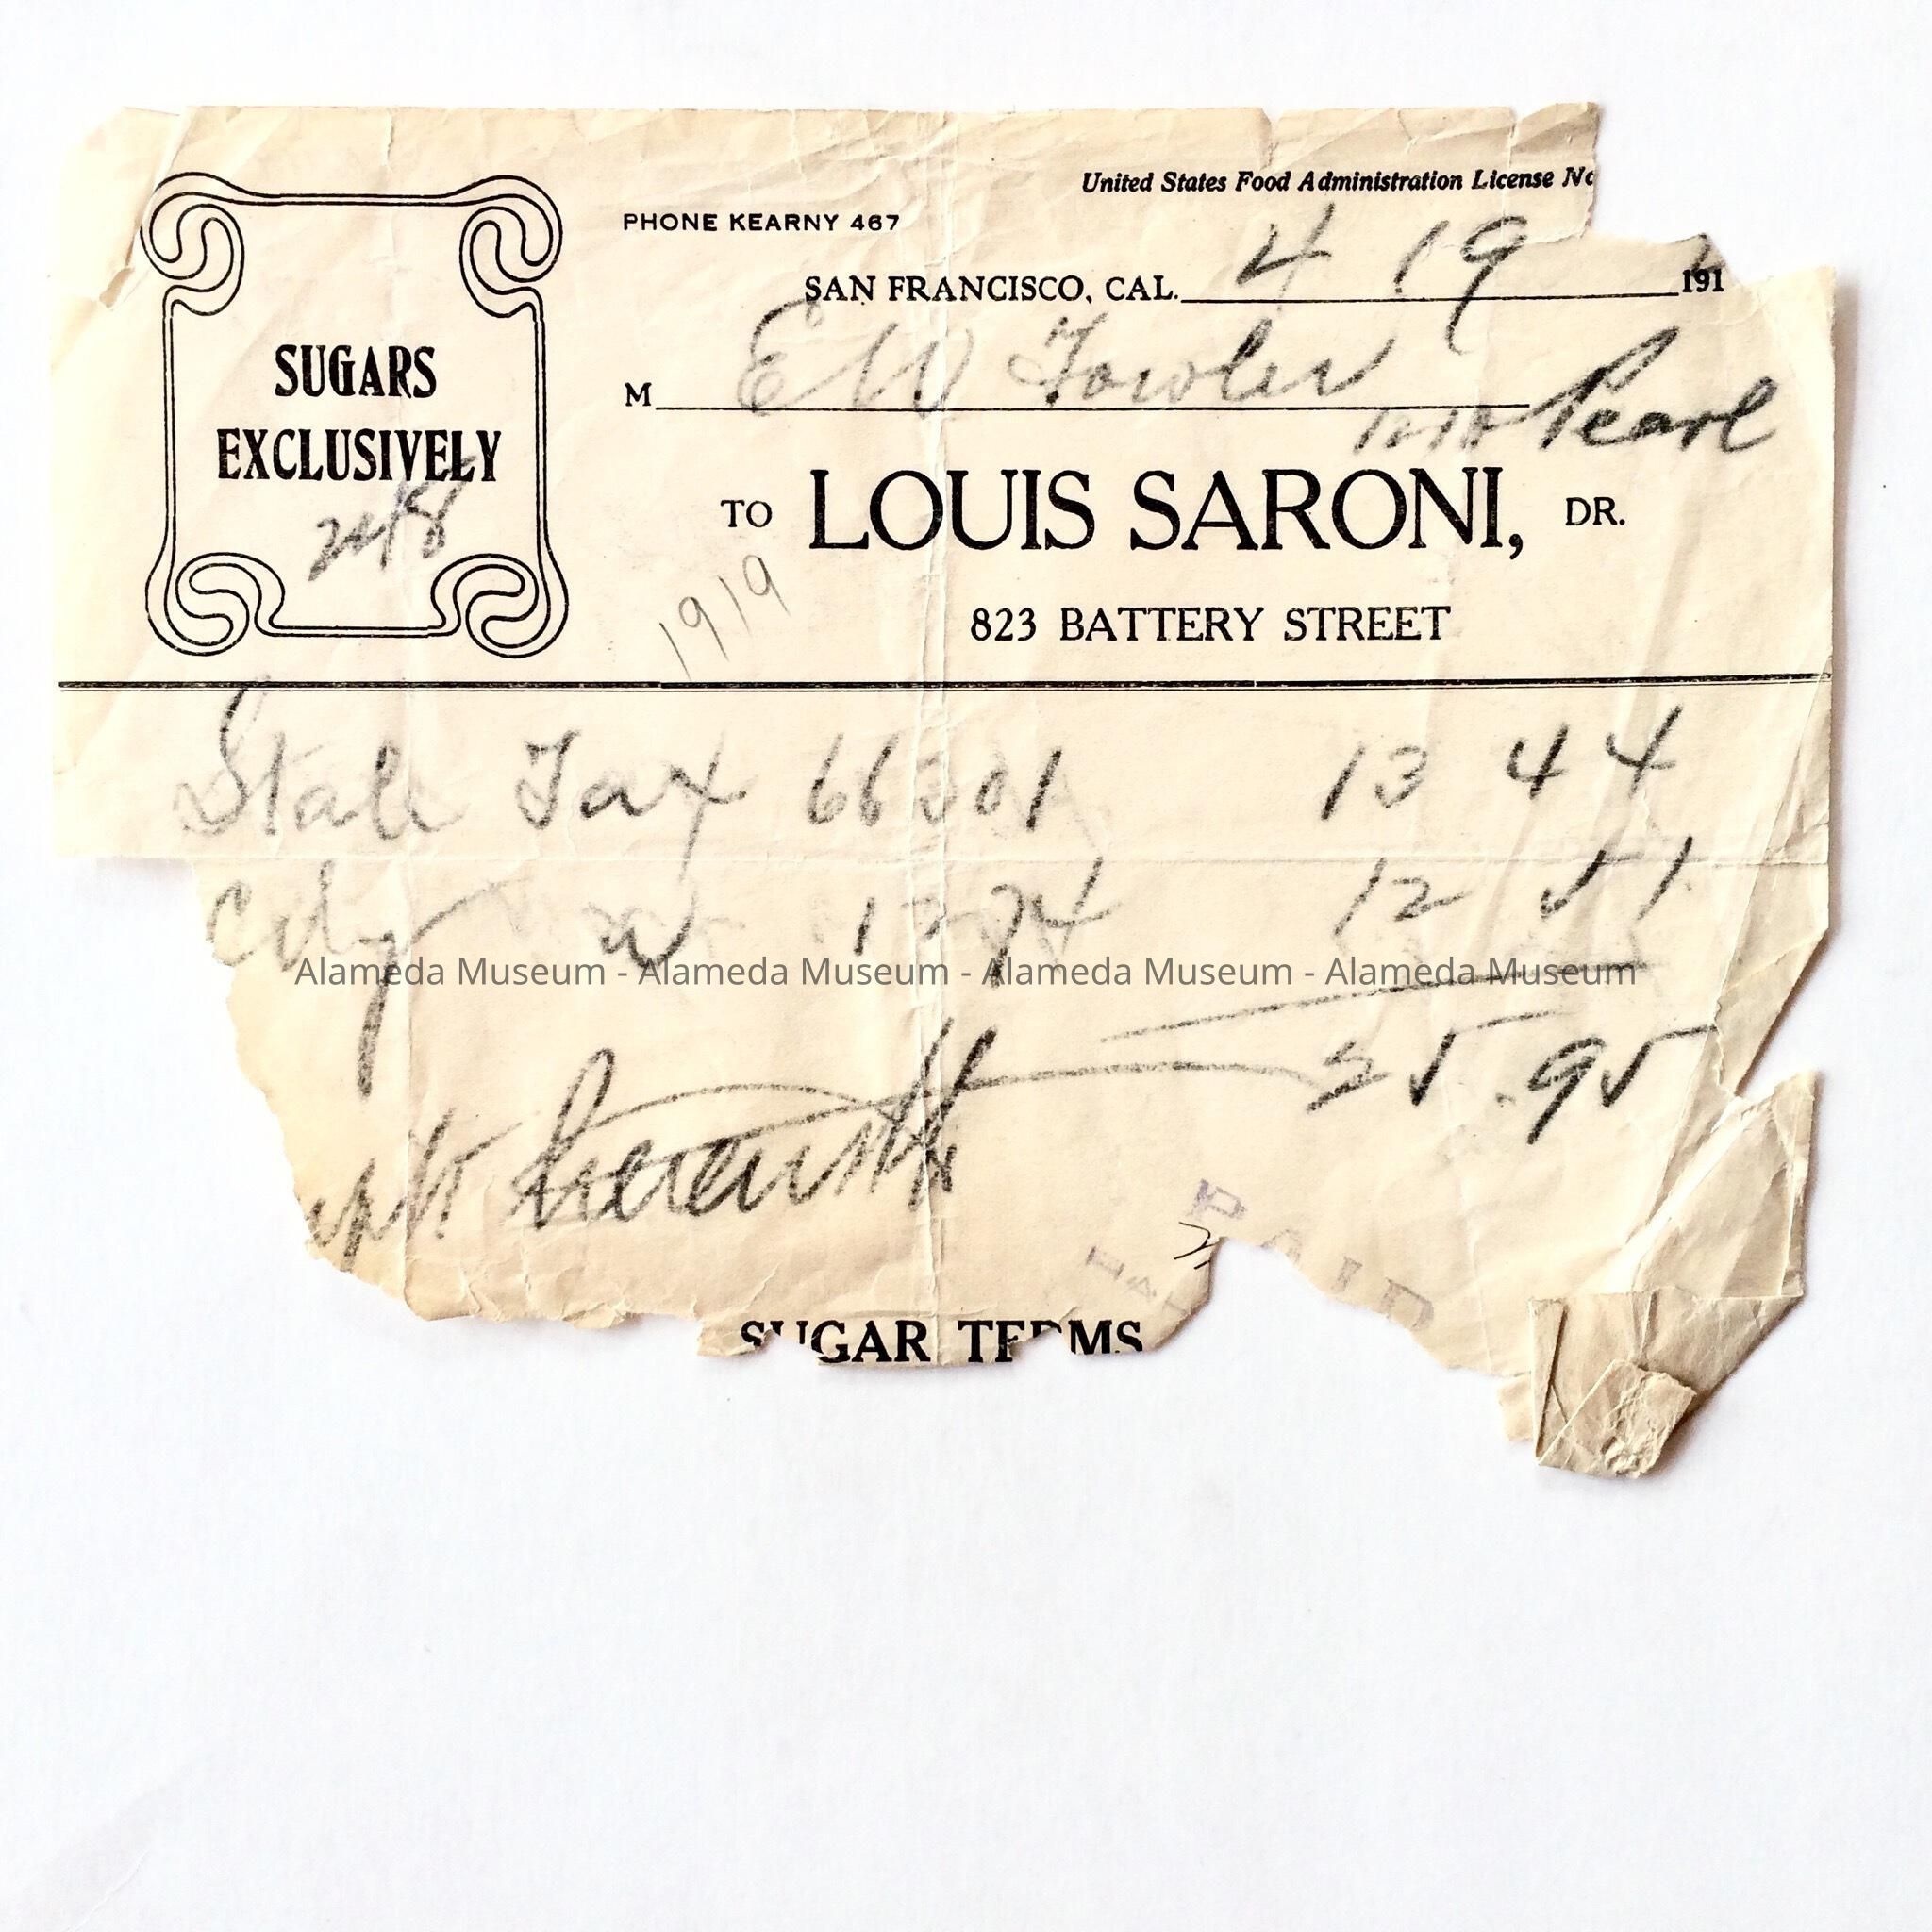 United States Food Administration License No
PHONE KEARNY 467
SAN FRANCISCO, CAL. 4 19 191
M E W Fowler
Pearl
SUGARS
EXCLUSIVELY
TO LOUIS SARONI, DR.
1919
823 BATTERY STREET
State Tax 66301 13 44
City 12 51
Alameda Museum - Alameda Museum - Alameda Museum - Alameda Museum
25.95
PAID
SUGAR TERMS